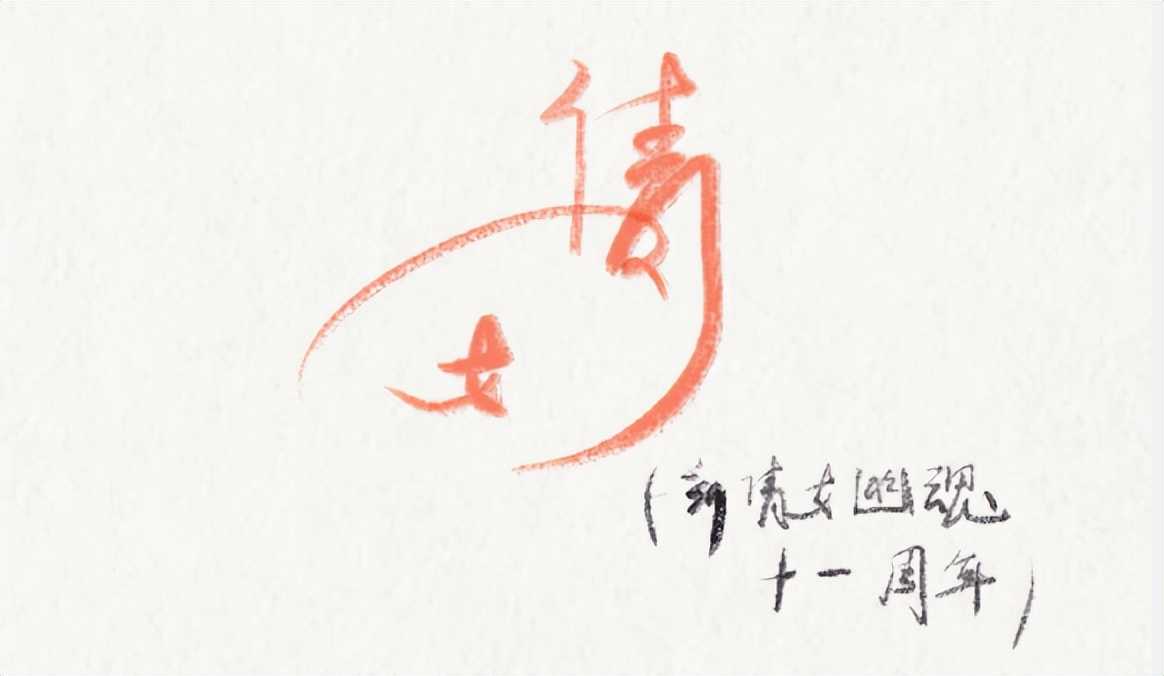 倩
女
(新倩女幽魂
十一周年)